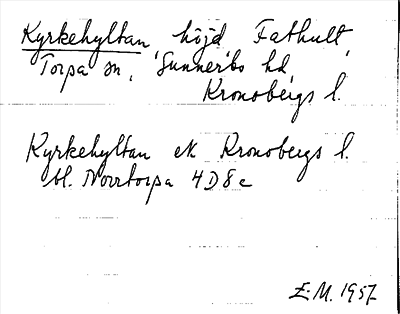 Kyrkehyltan höjd Fathult,
Torpa sn, Sunnerbo hd
Kronobergs l.
Kyrkehyltan ek Kronobergs l.
bl. Norrtorpa 4D8c
E.M. 1957